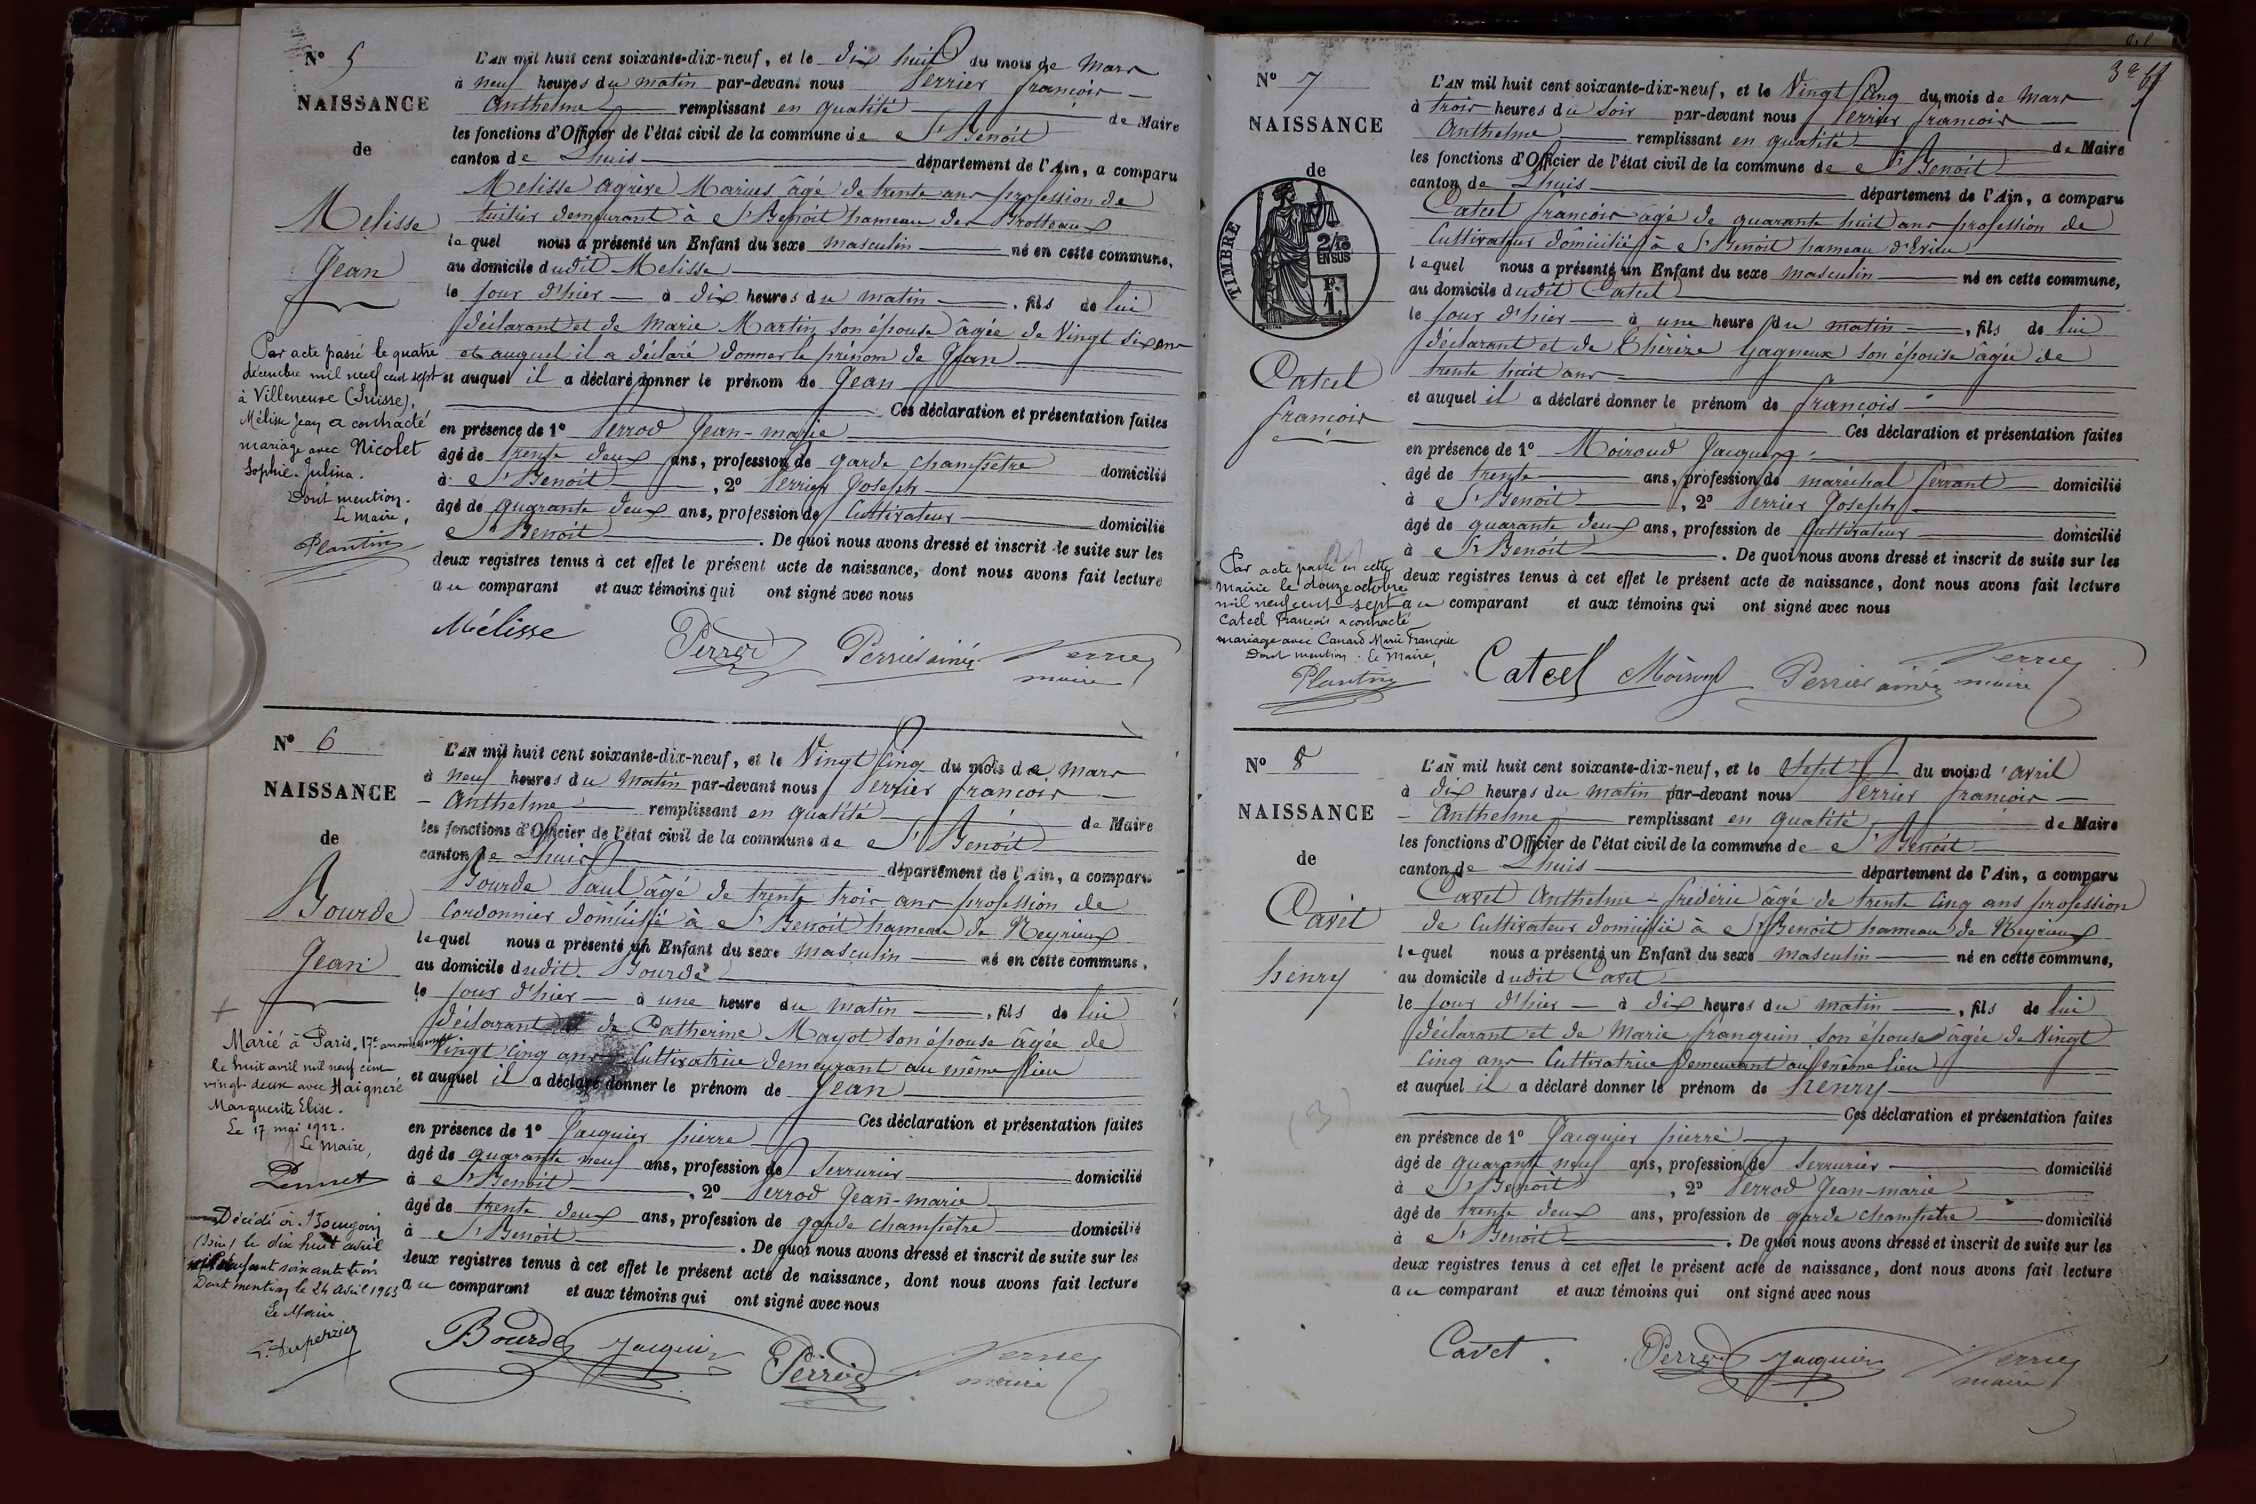 N° 5
NAISSANCE
de
Melisse
Jean
Par acte passé le quatre
décembre mil neuf cent sept
à Villeneuve (Suisse),
Mélisse Jean a contracté
mariage avec Nicolet
Sophie-Julina.
Dont mention.
Le Maire,
Plantin
L'AN mil huit cent soixante-dix-neuf, et le dix huit du mois de Mars
à neuf heures du matin par-devant nous Perrier françois
Anthelme remplissant en qualité de Maire
les fonctions d'Officier de l'état civil de la commune de St Benoit
canton de Lhuis département de l'Ain, a comparu
Melisse Agrève Marius âgé de trente ans profession de
tuilier demeurant à St Benoit hameau des Brotteaux
lequel nous a présenté un Enfant du sexe masculin né en cette commune,
au domicile dudit Melisse
le jour d'hier à dix heures du matin, fils de lui
déclarant et de Marie Martin son épouse âgée de Vingt six ans
et auquel il a déclaré donner le prénom de Jean
et auquel il a déclaré donner le prénom de Jean
Ces déclaration et présentation faites
en présence de 1° Perrod Jean-marie
âgé de trente deux ans, profession de garde champêtre domicilié
à St Benoit, 2° Perrier Joseph
âgé de quarante deux ans, profession de Cultivateur domicilié
St Benoit. De quoi nous avons dressé et inscrit de suite sur les
deux registres tenus à cet effet le présent acte de naissance, dont nous avons fait lecture
au comparant et aux témoins qui ont signé avec nous
Mélisse Perrod Perrier ainé Perrier
maire
N° 6
NAISSANCE
de
Bourde
Jean
Marié à Paris, 17e arrondissement
le huit avril mil neuf cent
vingt-deux avec Haigneré
Marguerite Elise.
Le 17 mai 1922.
Le Maire,
Décédé à Bourgoin
(Isère) le dix huit avril
mil neuf cent soixante trois
Dont mention le 24 Avril 1963
Le Maire
L'AN mil huit cent soixante-dix-neuf, et le Vingt Cinq du mois de Mars
à neuf heures du matin par-devant nous Perrier françois
Anthelme remplissant en qualité de Maire
les fonctions d'Officier de l'état civil de la commune de St Benoit
canton de Lhuis département de l'Ain, a comparu
Bourde Paul âgé de trente trois ans profession de
Cordonnier domicilié à St Benoit hameau de Neyrieux
lequel nous a présenté un Enfant du sexe masculin né en cette commune,
au domicile dudit Bourde
le jour d'hier à une heure du matin, fils de lui
déclarant et de Catherine Mayot son épouse âgée de
Vingt Cinq ans Cultivatrice demeurant au même lieu
et auquel il a déclaré donner le prénom de Jean
Ces déclaration et présentation faites
en présence de 1° Jacquier pierre
âgé de quarante neuf ans, profession de Serrurier domicilié
à St Benoit, 2° Perrod Jean-marie
âgé de trente deux ans, profession de garde champêtre domicilié
à St Benoit. De quoi nous avons dressé et inscrit de suite sur les
deux registres tenus à cet effet le présent acte de naissance, dont nous avons fait lecture
au comparant et aux témoins qui ont signé avec nous
Bourde Jacquier Perrod Perrier
maire
N° 7
NAISSANCE
de
TIMBRE
2/10
EN SUS
Catcel
françois
Par acte passé en cette
Mairie le douze octobre
mil neuf cent sept
Catcel François a contracté
mariage avec Canard Marie Françoise
Dont mention. Le Maire,
Plantin
L'AN mil huit cent soixante-dix-neuf, et le Vingt Cinq du mois de Mars
à trois heures du soir par-devant nous Perrier françois
Anthelme remplissant en qualité de Maire
les fonctions d'Officier de l'état civil de la commune de St Benoit
canton de Lhuis département de l'Ain, a comparu
Catcel françois âgé de quarante huit ans profession de
Cultivateur domicilié à St Benoit hameau d'Evieu
lequel nous a présenté un Enfant du sexe masculin né en cette commune,
au domicile dudit Catcel
le jour d'hier à une heure du matin, fils de lui
déclarant et de Thérèze Gagneux son épouse âgée de
trente huit ans
et auquel il a déclaré donner le prénom de françois
Ces déclaration et présentation faites
en présence de 1° Moiroud Jacques
âgé de trente ans, profession de maréchal ferrant domicilié
à St Benoit, 2° Perrier Joseph
âgé de quarante deux ans, profession de Cultivateur domicilié
à St Benoit. De quoi nous avons dressé et inscrit de suite sur les
deux registres tenus à cet effet le présent acte de naissance, dont nous avons fait lecture
au comparant et aux témoins qui ont signé avec nous
Catcel Moiroud Perrier ainé Perrier
maire
N° 8
NAISSANCE
de
Cavet
henry
(3)
L'AN mil huit cent soixante-dix-neuf, et le Sept du mois d'avril
à dix heures du matin par-devant nous Perrier françois
Anthelme remplissant en qualité de Maire
les fonctions d'Officier de l'état civil de la commune de St Benoit
canton de Lhuis département de l'Ain, a comparu
Cavet Anthelme-fréderic âgé de trente Cinq ans profession
de Cultivateur domicilié à St Benoit hameau de Neyrieux
lequel nous a présenté un Enfant du sexe masculin né en cette commune,
au domicile dudit Cavet
le jour d'hier à dix heures du matin, fils de lui
déclarant et de Marie franquin son épouse âgée de Vingt
Cinq ans Cultivatrice demeurant au même lieu
et auquel il a déclaré donner le prénom de henry
Ces déclaration et présentation faites
en présence de 1° Jacquier pierre
âgé de quarante neuf ans, profession de Serrurier domicilié
à St Benoit, 2° Perrod Jean-marie
âgé de trente deux ans, profession de garde champêtre domicilié
à St Benoit. De quoi nous avons dressé et inscrit de suite sur les
deux registres tenus à cet effet le présent acte de naissance, dont nous avons fait lecture
au comparant et aux témoins qui ont signé avec nous
Cavet. Perrod Jacquier Perrier
maire